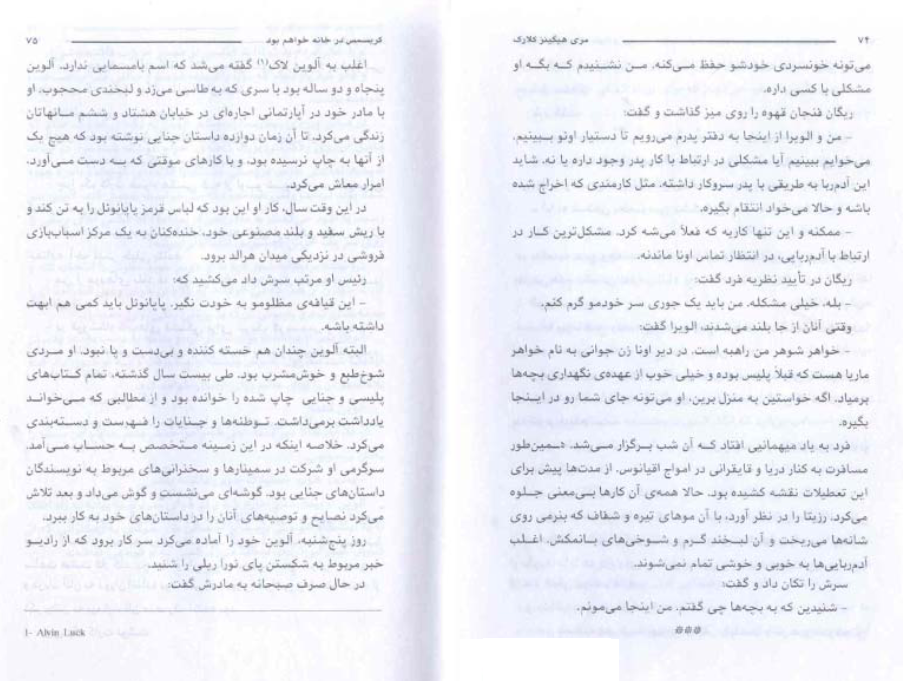 ۷۴ مری هیگینز کلارک
می‌تونه خونسردی خودشو حفظ می‌کنه. من نشنیدم که بگه او
مشکلی با کسی داره.
ریگان فنجان قهوه را روی میز گذاشت و گفت:
- من و الویرا از اینجا به دفتر پدرم می‌رویم تا دستیار اونو ببینیم.
می‌خوایم ببینیم آیا مشکلی در ارتباط با کار پدر وجود داره یا نه. شاید
این آدم‌ربا به طریقی با پدر سروکار داشته. مثل کارمندی که اخراج شده
باشه و حالا می‌خواد انتقام بگیره.
- ممکنه و این تنها کاریه که فعلاً می‌شه کرد. مشکل‌ترین کار در
ارتباط با آدم‌ربایی، در انتظار تماس اونا ماندنه.
ریگان در تأیید نظریه فرد گفت:
- بله، خیلی مشکله. من باید یک جوری سر خودمو گرم کنم.
وقتی آنان از جا بلند می‌شدند، الویرا گفت:
- خواهر شوهر من راهبه است. در دیر اونا زن جوانی به نام خواهر
ماریا هست که قبلاً پلیس بوده و خیلی خوب از عهده‌ی نگهداری بچه‌ها
برمیاد. اگه خواستین به منزل برین، او می‌تونه جای شما رو در اینجا
بگیره.
فرد به یاد میهمانیی افتاد که آن شب برگزار می‌شد. همین‌طور
مسافرت به کنار دریا و قایقرانی در امواج اقیانوس. از مدت‌ها پیش برای
این تعطیلات نقشه کشیده بود. حالا همه‌ی آن کارها بی‌معنی جلوه
می‌کرد، رزیتا را در نظر آورد، با آن موهای تیره و شفاف که بنرمی روی
شانه‌ها می‌ریخت و آن لبخند گرم و شوخی‌های بانمکش. اغلب
آدم‌ربایی‌ها به خوبی و خوشی تمام نمی‌شوند.
سرش را تکان داد و گفت:
- شنیدین که به بچه‌ها چی گفتم. من اینجا می‌مونم.
***
کریسمس در خانه خواهم بود ۷۵
اغلب به آلوین لاک(۱) گفته می‌شد که اسم بامسمایی ندارد. آلوین
پنجاه و دو ساله بود با سری که به طاسی می‌زد و لبخندی محجوب. او
با مادر خود در آپارتمانی اجاره‌ای در خیابان هشتاد و ششم مانهاتان
زندگی می‌کرد. تا آن زمان دوازده داستان جنایی نوشته بود که هیچ یک
از آنها به چاپ نرسیده بود، و با کارهای موقتی که به دست می‌آورد،
امرار معاش می‌کرد.
در این وقت سال، کار او این بود که لباس قرمز پاپانوئل را به تن کند و
با ریش سفید و بلند مصنوعی خود، خنده‌کنان به یک مرکز اسباب‌بازی
فروشی در نزدیکی میدان هرالد برود.
رئیس او مرتب سرش داد می‌کشید که:
- این قیافه‌ی مظلومو به خودت نگیر. پاپانوئل باید کمی هم ابهت
داشته باشه.
البته آلوین چندان هم خسته کننده و بی‌دست و پا نبود. او مردی
شوخ‌طبع و خوش‌مشرب بود. طی بیست سال گذشته، تمام کتاب‌های
پلیسی و جنایی چاپ شده را خوانده بود و از مطالبی که می‌خواند
یادداشت برمی‌داشت. توطئه‌ها و جنایات را فهرست و دسته‌بندی
می‌کرد. خلاصه اینکه در این زمینه متخصص به حساب می‌آمد.
سرگرمی او شرکت در سمینارها و سخنرانی‌های مربوط به نویسندگان
داستان‌های جنایی بود. گوشه‌ای می‌نشست و گوش می‌داد و بعد تلاش
می‌کرد نصایح و توصیه‌های آنان را در داستان‌های خود به کار ببرد.
روز پنج‌شنبه، آلوین خود را آماده می‌کرد سر کار برود که از رادیو
خبر مربوط به شکستن پای نورا ریلی را شنید.
در حال صرف صبحانه به مادرش گفت:
1- Alvin Luck